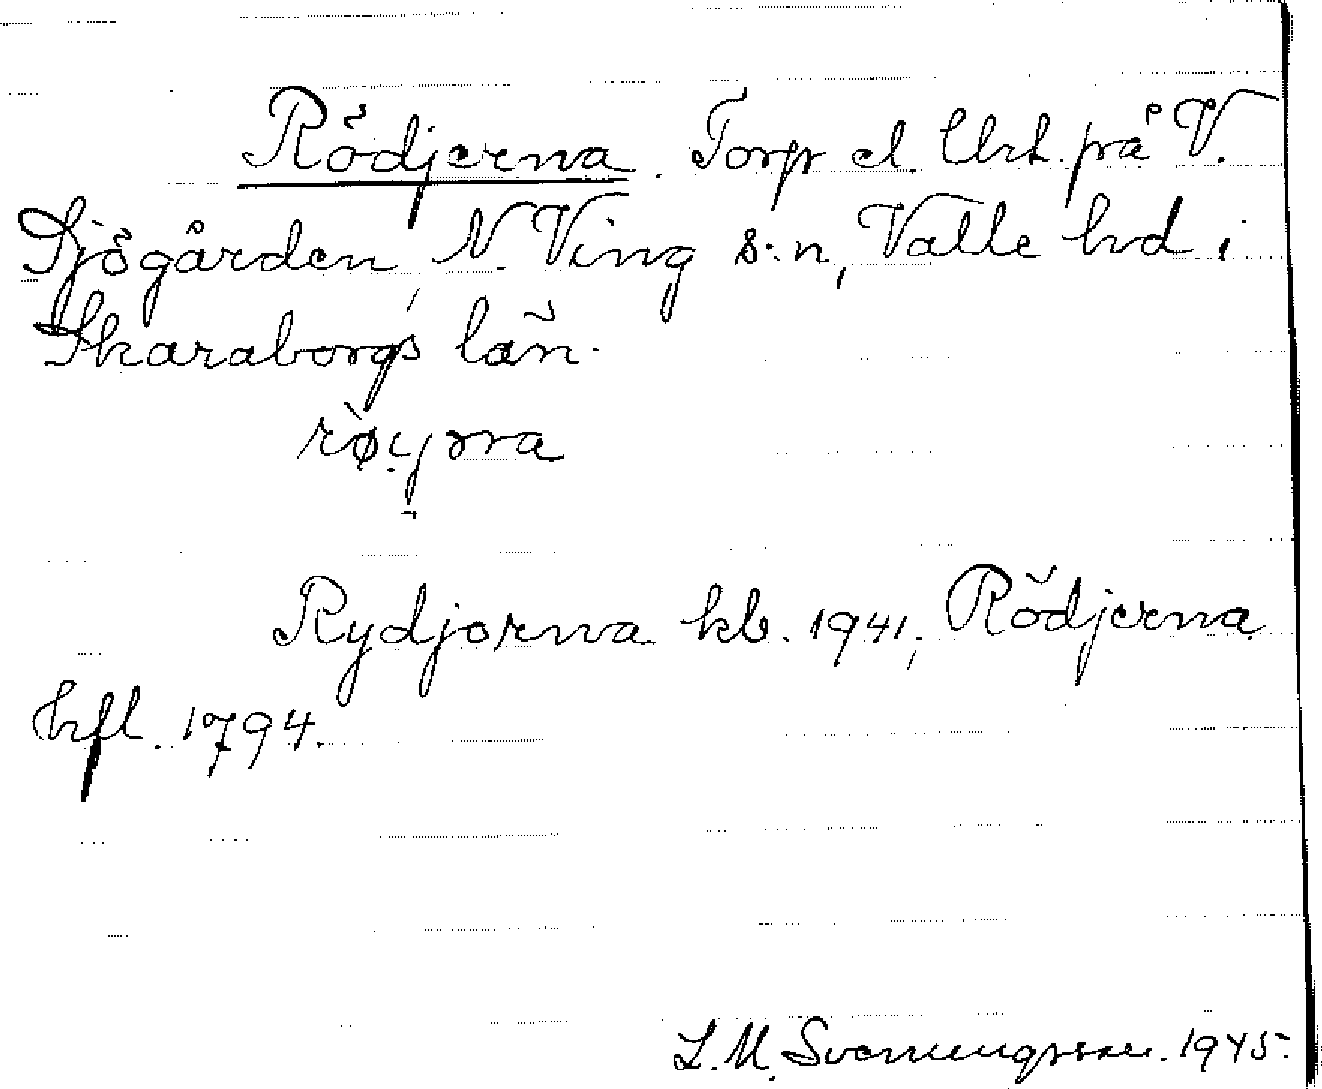 Rödjerna. Torp el. Urh. på V.
Sjögården, N. Ving s:n, Valle hd i
Skaraborgs län.
Rydjorna kb. 1941, Rödjerna
hfl. 1794.
L.M. Svenungsson. 1945.